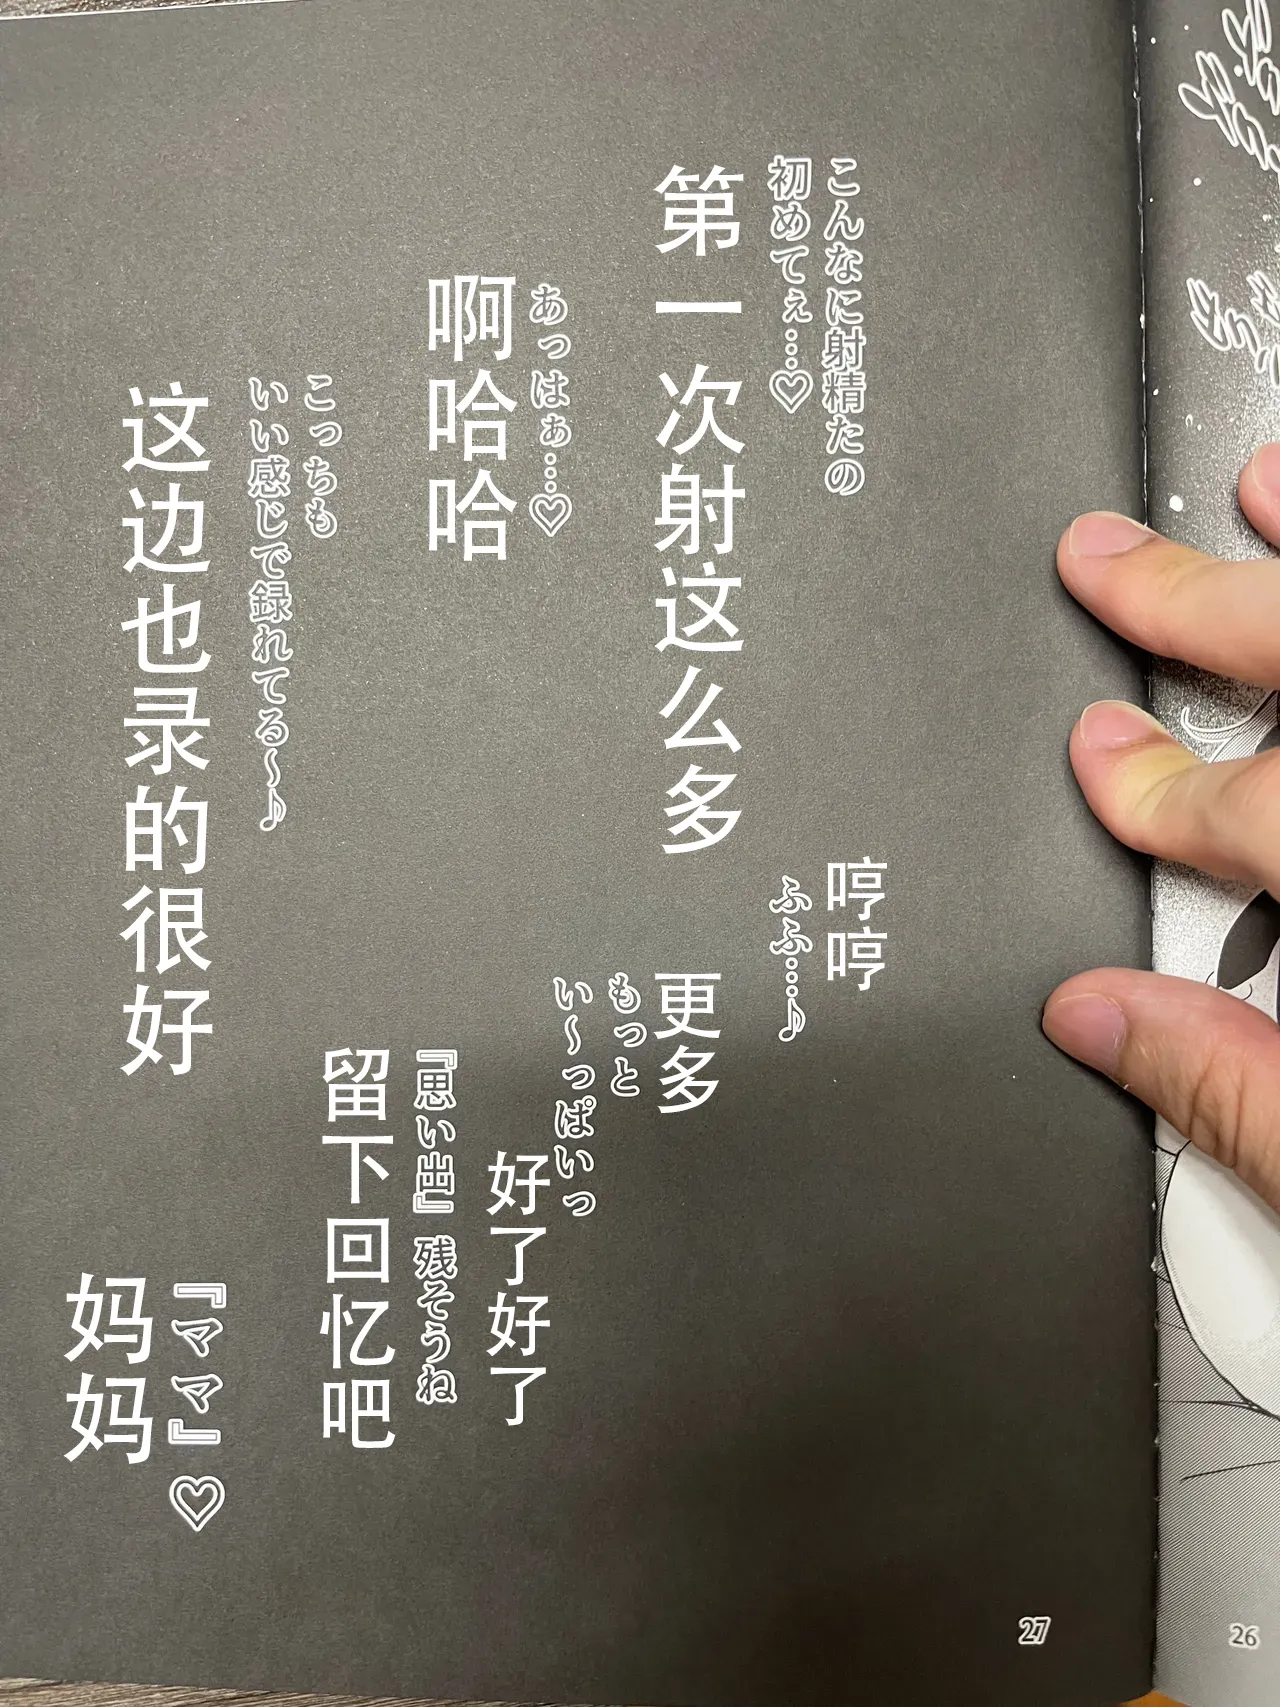 こんなに射精たの
初めてぇ…♡
第一次射这么多
哼哼
ふふ…♪
あっはぁ…♡
啊哈哈
更多
もっと
い～っぱいっ
好了好了
『思い出』残そうね
留下回忆吧
こっちも
いい感じで録れてる～♪
这边也录的很好
『ママ』♡
妈妈
27
26